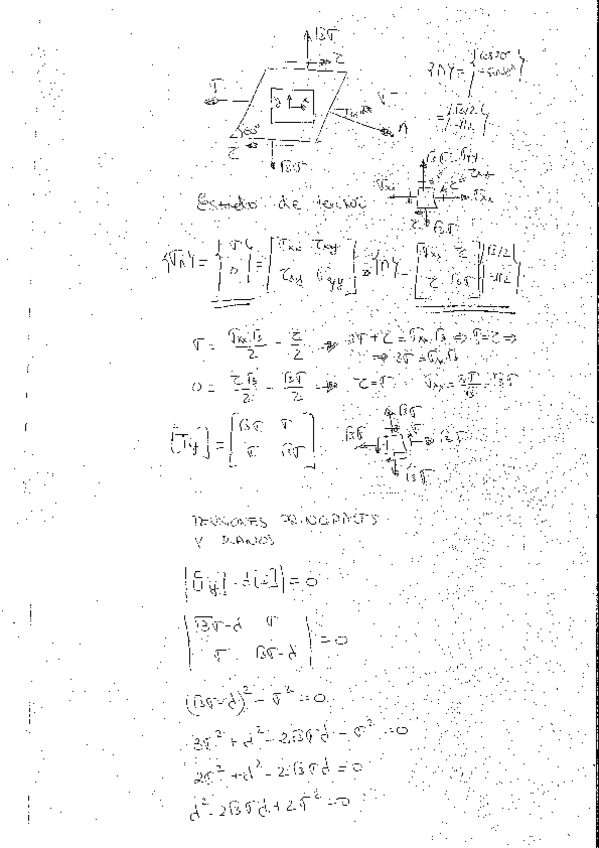 √3σ
τ
{n} = {cos30° / -sin30°}
= {√3/2 / -1/2}
σ
y
x
σ
60°
n
τ
√3σ
√3σ = σyy
τxy
Estado de tensión
σxx
τ
σxx
τ
√3σ
{σn} = {σ / 0} = [σxx τxy / τxy σyy] {n} = [σxx τ / τ √3σ] {√3/2 / -1/2}
σ = σxx·√3/2 - τ/2 ⇒ 2σ + τ = σxx·√3 ⇒ σ = τ ⇒
⇒ 3σ = σxx·√3
0 = τ√3/2 - √3σ/2 ⇒ τ = σ σxx = 3σ/√3 = √3σ
[Txy] = [√3σ σ / σ √3σ]
√3σ
√3σ
σ
√3σ
TENSIONES PRINCIPALES
Y PLANOS
|[Txy] - λ[I]| = 0
|√3σ-λ σ / σ √3σ-λ| = 0
(√3σ-λ)² - σ² = 0
3σ² + λ² - 2√3σλ - σ² = 0
2σ² + λ² - 2√3σλ = 0
λ² - 2√3σλ + 2σ² = 0